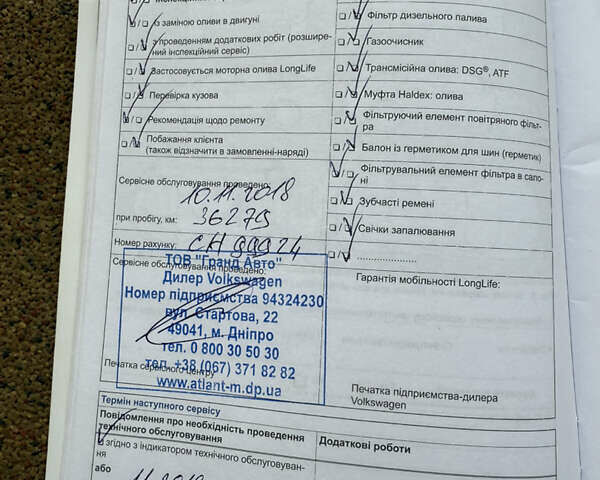 / Із заміною оливи в двигуні
/ з проведенням додаткових робіт (розшире-
ний інспекційний сервіс)
/ Застосовується моторна олива LongLife
/ Перевірка кузова
/ Рекомендація щодо ремонту
/ Побажання клієнта
(також відзначити в замовленні-наряді)
/ Фільтр дизельного палива
/ Газоочисник
/ Трансмісійна олива: DSG®, ATF
/ Муфта Haldex: олива
/ Фільтруючий елемент повітряного фільт-
ра
/ Балон із герметиком для шин (герметик)
/ Фільтрувальний елемент фільтра в сало-
ні
/ Зубчасті ремені
/ Свічки запалювання
/ ......................
Сервісне обслуговування проведено:
10.11.2018
при пробігу, км: 36279
Номер рахунку: СН 99924
Сервісне обслуговування проведено:
ТОВ "Гранд Авто"
Дилер Volkswagen
Номер підприємства 94324230
вул. Стартова, 22
49041, м. Дніпро
тел. 0 800 30 50 30
тел. +38 (067) 371 82 82
www.atlant-m.dp.ua
Печатка сервісного центру
Гарантія мобільності LongLife:
Печатка підприємства-дилера
Volkswagen
Термін наступного сервісу
Повідомлення про необхідність проведення
технічного обслуговування
Додаткові роботи
згідно з індикатором технічного обслуговуван-
ня
або